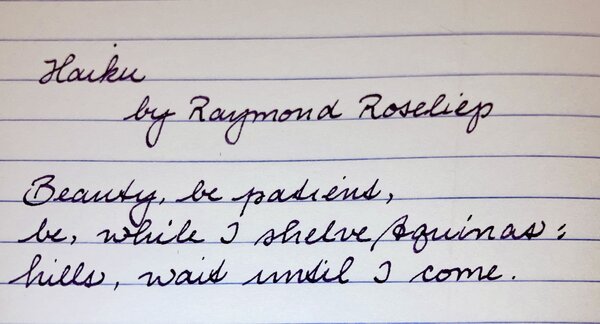 Haiku
by Raymond Roseliep
Beauty, be patient,
be, while I shelve Aquinas:
hills, wait until I come.